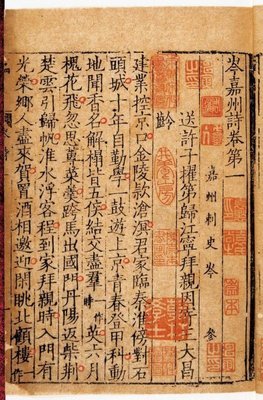 岑嘉州詩卷第一
嘉州刺史岑 參
送許子擢第歸江寧拜親因寄王大昌
齡
建業控京口金陵款滄溟君家臨秦淮傍對石
頭城十年自勤學一鼓遊上京青春登甲科動
地聞香名解榻皆五侯結交盡羣一作時英六月
槐花飛忽思蓴菜羹跨馬出國門丹陽返柴荆
楚雲引歸帆淮水浮客程到家拜親時入門有
光榮鄉人盡來賀置酒相邀迎閒眺北顧樓一作